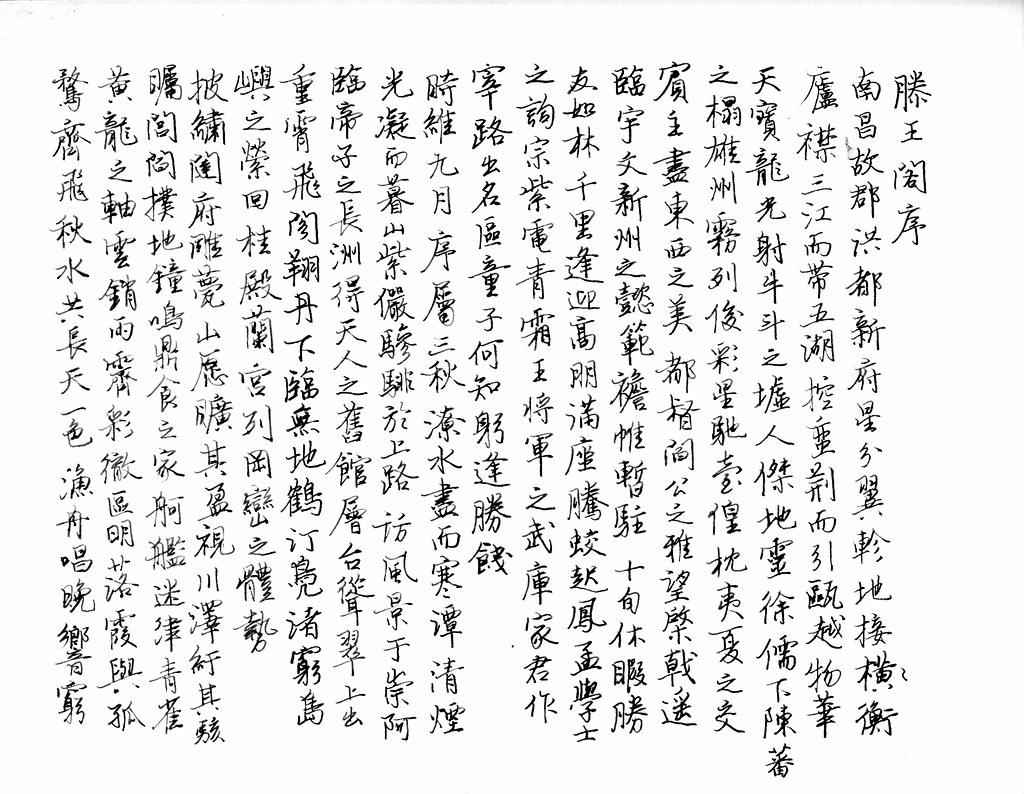 滕王閣序
南昌故郡洪都新府星分翼軫地接橫衡
廬襟三江而帶五湖控蠻荆而引甌越物華
天寶龍光射牛斗之墟人傑地靈徐儒下陳蕃
之榻雄州霧列俊彩星馳臺隍枕夷夏之交
賓主盡東西之美都督閻公之雅望棨戟遥
臨宇文新州之懿範襜帷暫駐十旬休暇勝
友如林千里逢迎高朋滿座騰蛟起鳳孟學士
之詞宗紫電青霜王將軍之武庫家君作
宰路出名區童子何知躬逢勝餞
時維九月序屬三秋潦水盡而寒潭清煙
光凝而暮山紫儼驂騑於上路訪風景于崇阿
臨帝子之長洲得天人之舊館層台聳翠上出
重霄飛閣翔丹下臨無地鶴汀鳧渚窮島
嶼之縈回桂殿蘭宮列岡巒之體勢
披繡闥府雕甍山原曠其盈視川澤紆其駭
矚閭閻撲地鐘鳴鼎食之家舸艦迷津青雀
黃龍之軸雲銷雨霽彩徹區明落霞與孤
鶩齊飛秋水共長天一色漁舟唱晚響窮